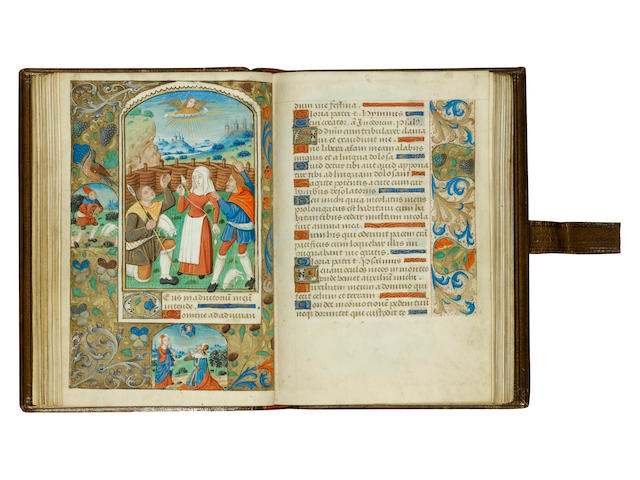 Eus in adiutoriu meu
intende
Domine ad adiuvan
dum me festina
Gloria patri et Hymnus
Veni creator a In eternu Psal
Ad dnm cum tribularer clama
vi et exaudivit me
Dne libera aiam meam a labiis
iniquis et a lingua dolosa
Quid detur tibi aut quid appona
tur tibi ad linguam dolosam
Sagitte potentis acute cum car
bonibus desolatoriis
Heu michi quia incolatus meus
prolongatus est habitavi cum ha
bitantibus cedar multum incola
fuit anima mea
Cum his qui oderunt pacem eram
pacificus cum loquebar illis im
pugnabant me gratis
Gloria patri et Psalmus
Levavi oculos meos in montes
unde veniet auxiliu michi
Auxilium meum a domino qui
fecit celum et terram
Non det in comotionem pedem tuu
neqz dormitet qui custodit te